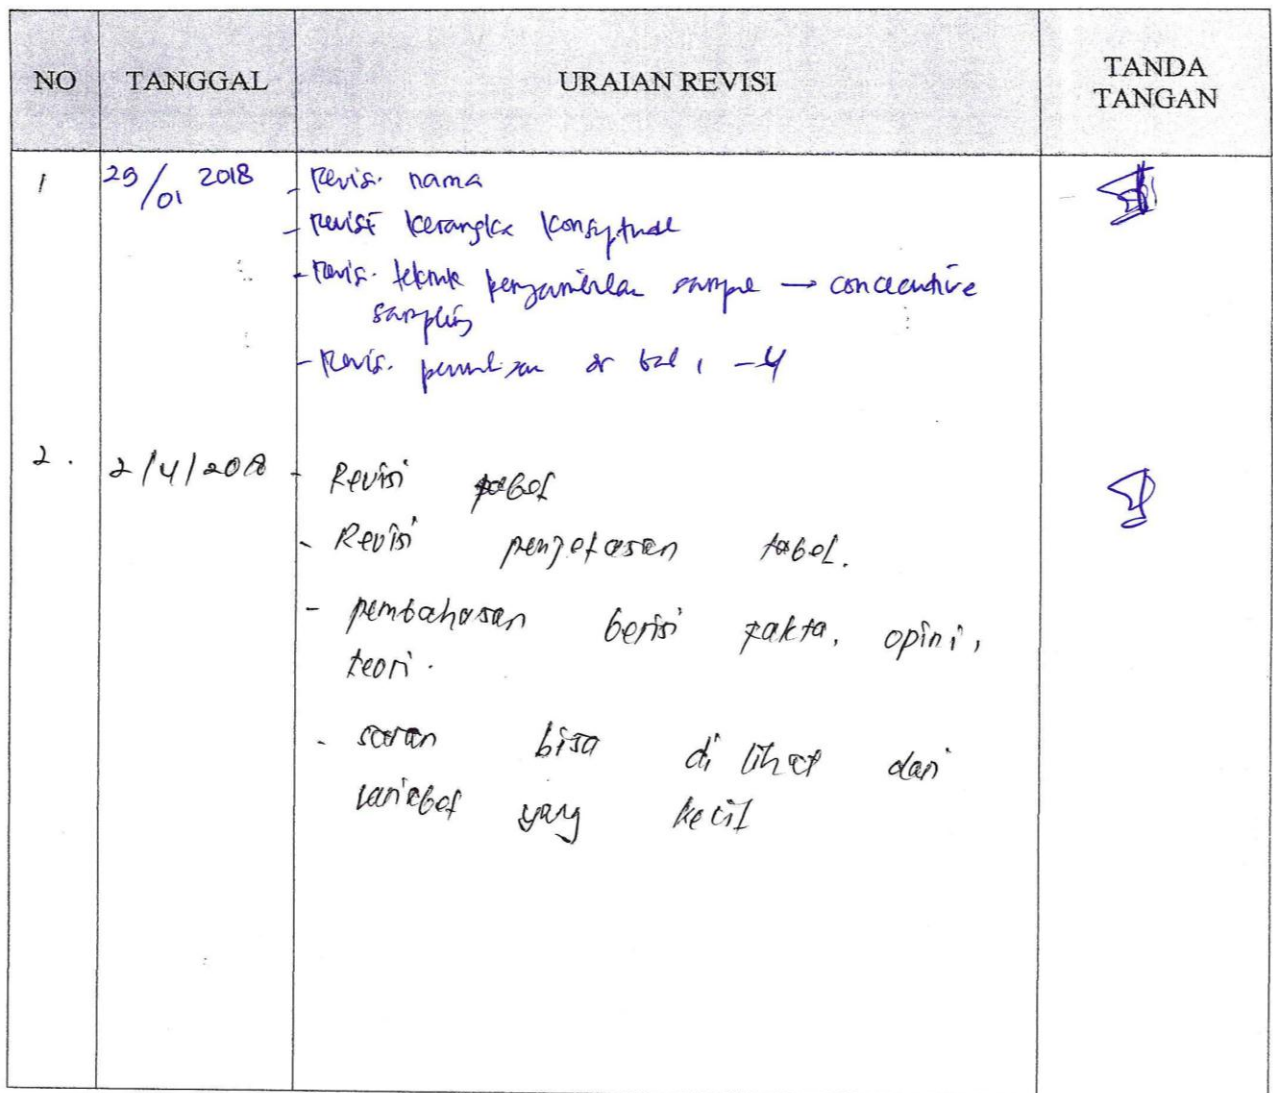 NO TANGGAL URAIAN REVISI TANDA TANGAN
1 29/01 2018 - Revisi nama
- Revisi kerangka konseptual
- Revisi teknik pengambilan sampel → concecutive
sampling
- Revisi penulisan bab 1 - 4
2. 2/4/2018 - Revisi tabel
- Revisi penjelasan tabel.
- pembahasan berisi fakta, opini,
teori.
- saran bisa di lihat dari
variabel yang kecil